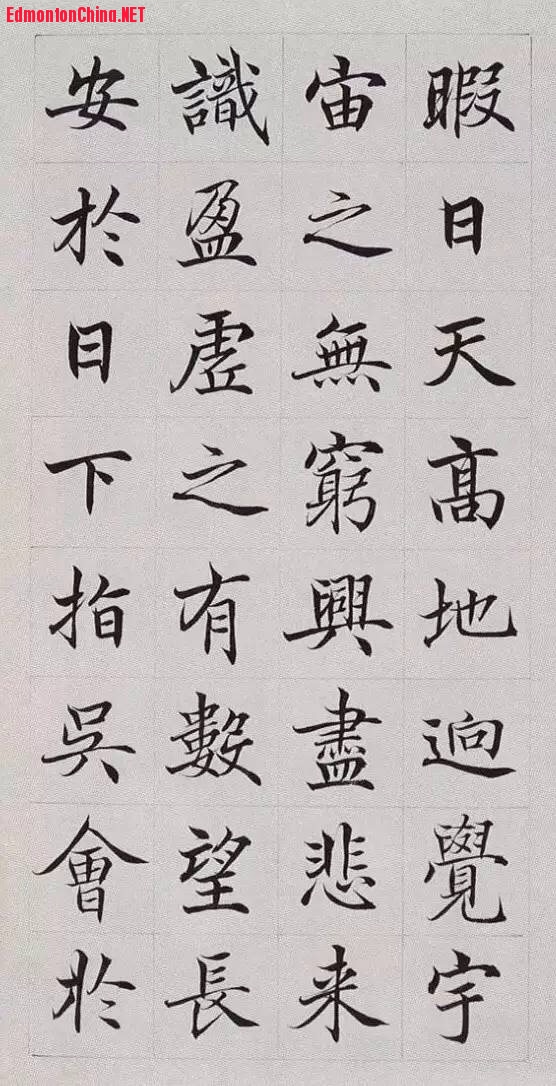 EdmontonChina.NET
暇日天高地逈覺宇
宙之無窮興盡悲来
識盈虛之有數望長
安於日下指吳會於